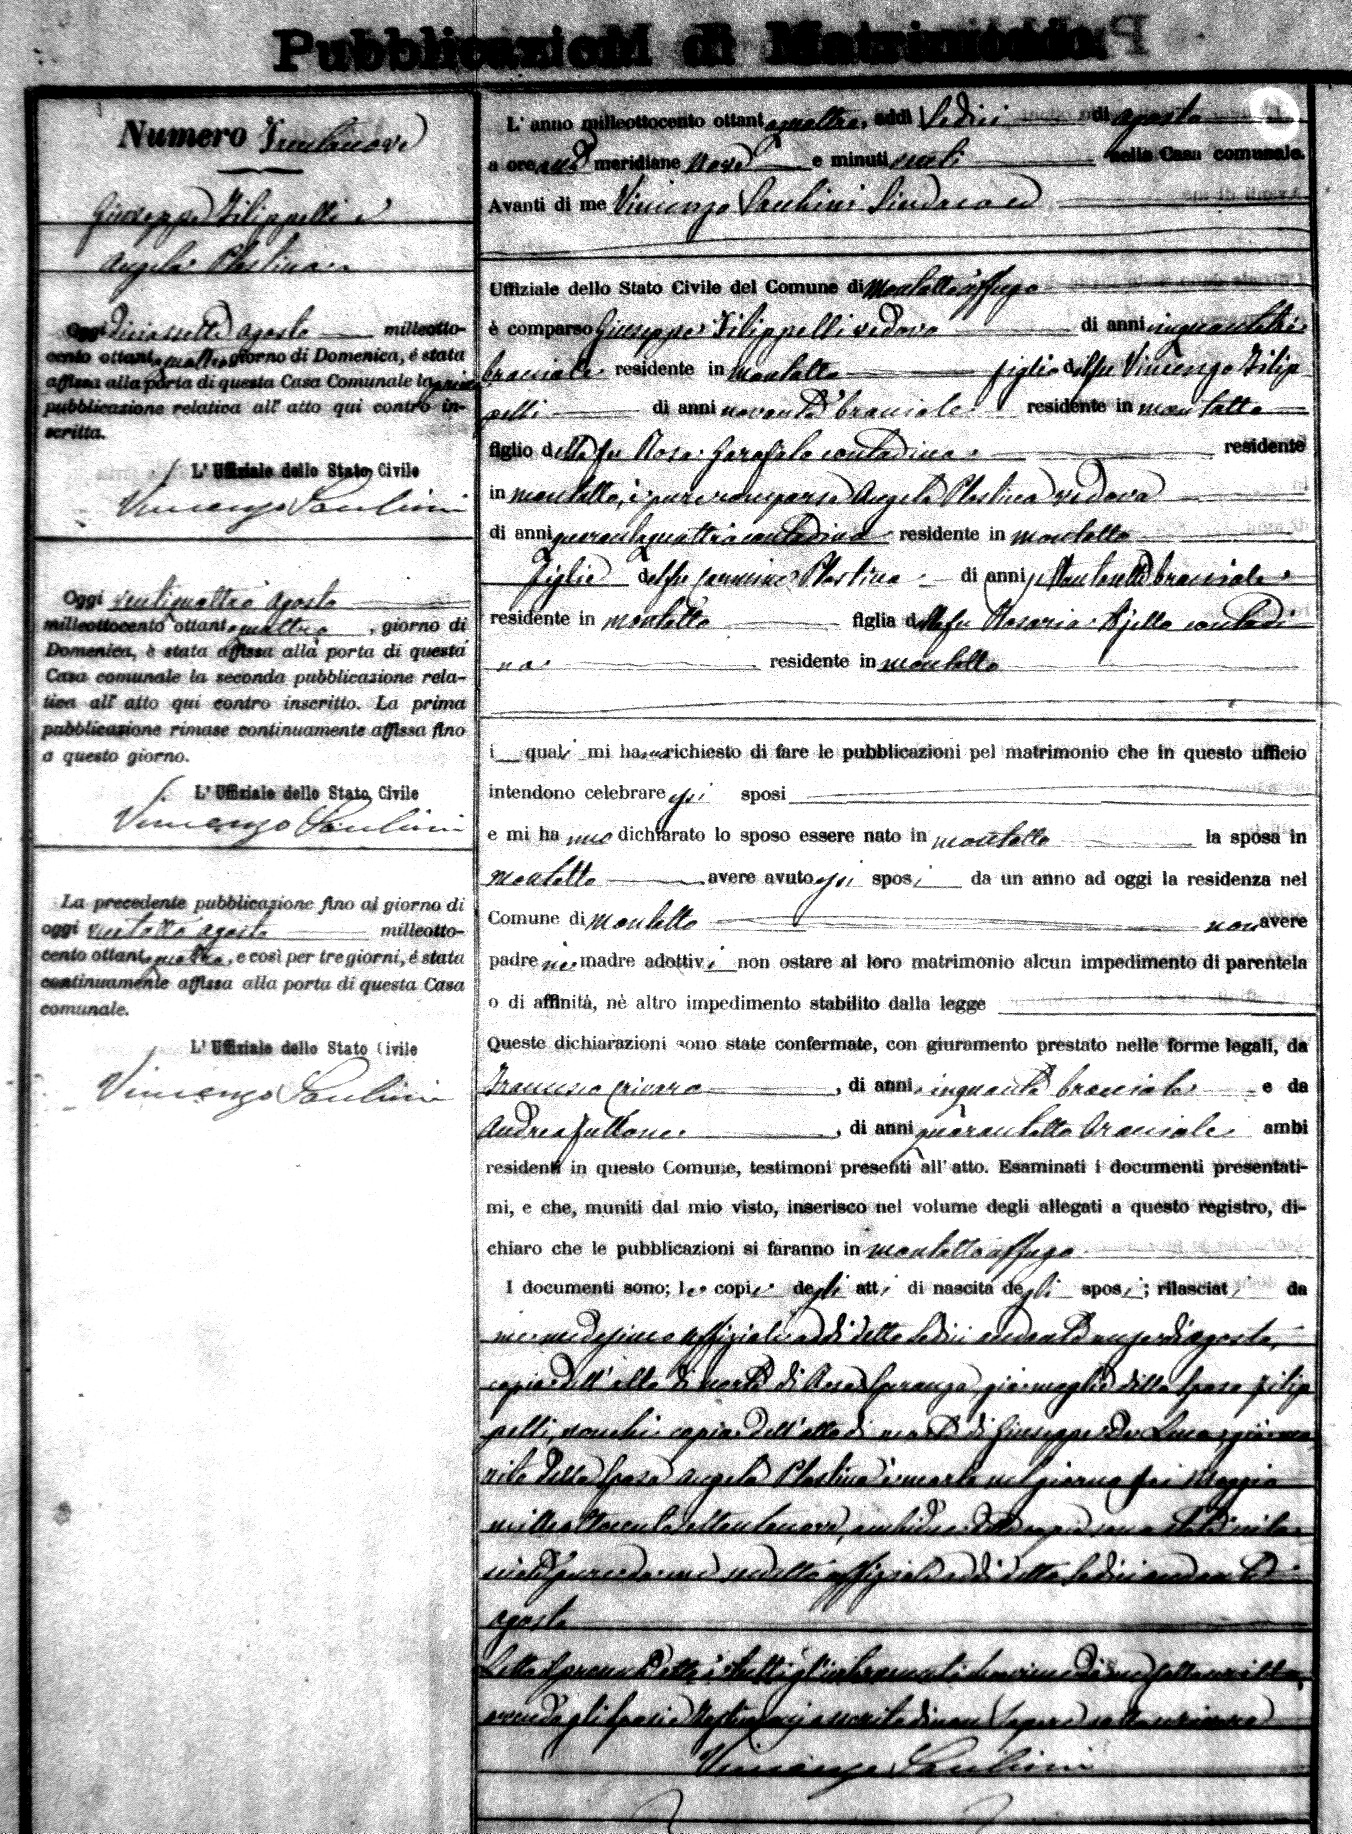 Pubblicazioni di Matrimonio
Numero Trentanove
Giuseppe Filippelli e
Angela Plastina
Oggi diciassette agosto milleotto-
cento ottantaquattro giorno di Domenica, é stata
affissa alla porta di questa Casa Comunale la prima
pubblicazione relativa all' atto qui contro in-
scritta.
L' Uffiziale dello Stato Civile
Vincenzo
Oggi ventiquattro agosto
milleottocento ottantaquattro, giorno di
Domenica, è stata affissa alla porta di questa
Casa comunale la seconda pubblicazione rela-
tiva all' atto qui contro inscritto. La prima
pubblicazione rimase continuamente affissa fino
a questo giorno.
L' Uffiziale dello Stato Civile
Vincenzo
La precedente pubblicazione fino al giorno di
oggi ventotto agosto milleotto-
cento ottantaquattro, e così per tre giorni, é stata
continuamente affissa alla porta di questa Casa
comunale.
L' Uffiziale dello Stato Civile
Vincenzo
L' anno milleottocento ottantaquattro, addì sedici di agosto
a ore anti meridiane nove e minuti venti nella Casa comunale.
Avanti di me Vincenzo Sindaco ed
Uffiziale dello Stato Civile del Comune di Montalto uffugo
è comparso Giuseppe Filippelli vedovo di anni cinquantatre
bracciale residente in montalto figlio del fu Vincenzo Filip
pelli di anni novanta bracciale residente in montalto
figlio della fu Rosa Garofalo contadina residente
in montalto, è pure comparsa Angela Plastina vedova
di anni quarantaquattro contadina residente in montalto
Figlia del fu Carmine Plastina di anni settantasette bracciale
residente in montalto figlia della fu Rosaria Ajello contadi
na residente in montalto
i quali mi hanno richiesto di fare le pubblicazioni pel matrimonio che in questo ufficio
intendono celebrare essi sposi
e mi hanno dichiarato lo sposo essere nato in montalto la sposa in
montalto avere avuto essi sposi da un anno ad oggi la residenza nel
Comune di montalto non avere
padre nè madre adottivi non ostare al loro matrimonio alcun impedimento di parentela
o di affinità, nè altro impedimento stabilito dalla legge
Queste dichiarazioni sono state confermate, con giuramento prestato nelle forme legali, da
Francesco Crivaro, di anni cinquanta bracciale e da
Andrea, di anni quarantotto bracciale ambi
residenti in questo Comune, testimoni presenti all' atto. Esaminati i documenti presentati-
mi, e che, muniti dal mio visto, inserisco nel volume degli allegati a questo registro, di-
chiaro che le pubblicazioni si faranno in montalto uffugo
I documenti sono; le copie degli atti di nascita degli sposi; rilasciati da
me medesimo uffiziale addì detto sedici andante agosto,
copia dell'atto di morte di Rosa Speranza, già moglie dello sposo Filip
pelli, nonchè copia dell'atto di morte di Giuseppe De Luca, già ma
rito della sposa Angela Plastina è morto nel giorno sei Maggio
milleottocento settantanove, ambidue state rila
sciate pure da me uffiziale addì detto sedici andante
agosto
Letto il presente atto a tutti gl'intervenuti
avendo gli sposi e testimoni asserito di non sapere sottoscrivere
Vincenzo